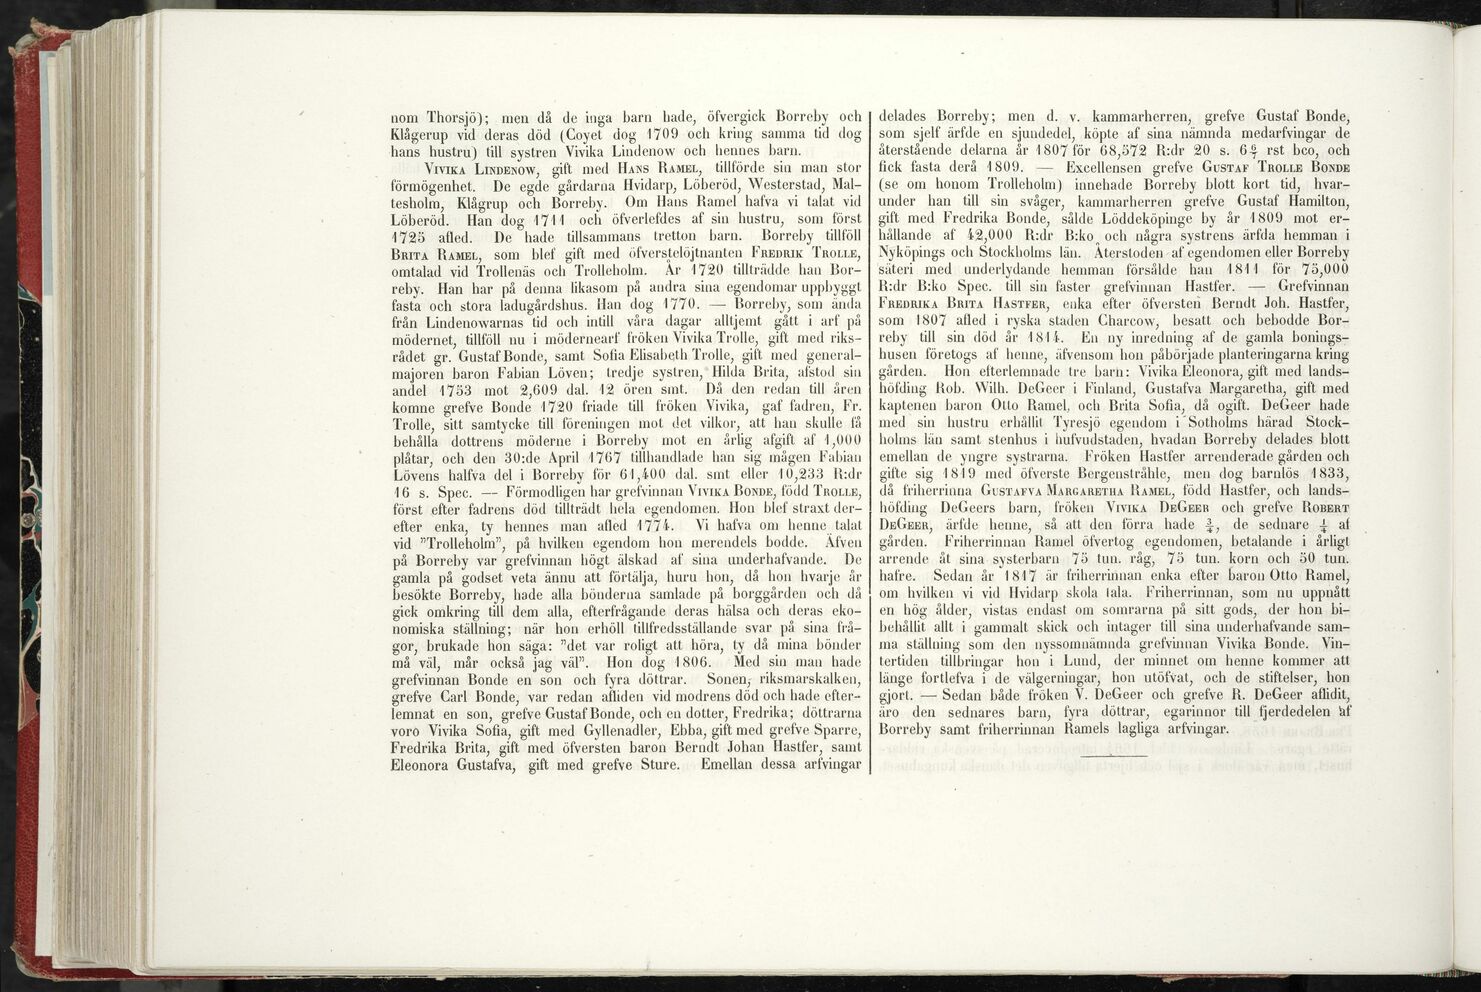 nom Thorsjö); men då de inga barn hade, öfvergick Borreby och
Klågerup vid deras död (Coyet dog 1709 och kring samma tid dog
hans hustru) till systren Vivika Lindenow och hennes barn.
Vivika Lindenow, gift med Hans Ramel, tillförde sin man stor
förmögenhet. De egde gårdarna Hvidarp, Löberöd, Westerstad, Mal-
tesholm, Klågrup och Borreby. Om Hans Ramel hafva vi talat vid
Löberöd. Han dog 1711 och öfverlefdes af sin hustru, som först
1725 afled. De hade tillsammans tretton barn. Borreby tillföll
Brita Ramel, som blef gift med öfverstelöjtnanten Fredrik Trolle,
omtalad vid Trollenäs och Trolleholm. År 1720 tillträdde han Bor-
reby. Han har på denna likasom på andra sina egendomar uppbyggt
fasta och stora ladugårdshus. Han dog 1770. — Borreby, som ända
från Lindenowarnas tid och intill våra dagar alltjemt gått i arf på
mödernet, tillföll nu i mödernearf fröken Vivika Trolle, gift med riks-
rådet gr. Gustaf Bonde, samt Sofia Elisabeth Trolle, gift med general-
majoren baron Fabian Löven; tredje systren, Hilda Brita, afstod sin
andel 1753 mot 2,609 dal. 12 ören smt. Då den redan till åren
komne grefve Bonde 1720 friade till fröken Vivika, gaf fadren, Fr.
Trolle, sitt samtycke till föreningen mot det vilkor, att han skulle få
behålla dottrens möderne i Borreby mot en årlig afgift af 1,000
plåtar, och den 30:de April 1767 tillhandlade han sig mågen Fabian
Lövens halfva del i Borreby för 61,400 dal. smt eller 10,233 R:dr
16 s. Spec. — Förmodligen har grefvinnan Vivika Bonde, född Trolle,
först efter fadrens död tillträdt hela egendomen. Hon blef straxt der-
efter enka, ty hennes man afled 1774. Vi hafva om henne talat
vid ”Trolleholm”, på hvilken egendom hon merendels bodde. Äfven
på Borreby var grefvinnan högt älskad af sina underhafvande. De
gamla på godset veta ännu att förtälja, huru hon, då hon hvarje år
besökte Borreby, hade alla bönderna samlade på borggården och då
gick omkring till dem alla, efterfrågande deras hälsa och deras eko-
nomiska ställning; när hon erhöll tillfredsställande svar på sina frå-
gor, brukade hon säga: ”det var roligt att höra, ty då mina bönder
må väl, mår också jag väl”. Hon dog 1806. Med sin man hade
grefvinnan Bonde en son och fyra döttrar. Sonen, riksmarskalken,
grefve Carl Bonde, var redan afliden vid modrens död och hade efter-
lemnat en son, grefve Gustaf Bonde, och en dotter, Fredrika; döttrarna
voro Vivika Sofia, gift med Gyllenadler, Ebba, gift med grefve Sparre,
Fredrika Brita, gift med öfversten baron Berndt Johan Hastfer, samt
Eleonora Gustafva, gift med grefve Sture. Emellan dessa arfvingar
delades Borreby; men d. v. kammarherren, grefve Gustaf Bonde,
som sjelf ärfde en sjundedel, köpte af sina nämnda medarfvingar de
återstående delarna år 1807 för 68,572 R:dr 20 s. 6 6/7 rst bco, och
fick fasta derå 1809. — Excellensen grefve Gustaf Trolle Bonde
(se om honom Trolleholm) innehade Borreby blott kort tid, hvar-
under han till sin svåger, kammarherren grefve Gustaf Hamilton,
gift med Fredrika Bonde, sålde Löddeköpinge by år 1809 mot er-
hållande af 42,000 R:dr B:ko och några systrens ärfda hemman i
Nyköpings och Stockholms län. Återstoden af egendomen eller Borreby
säteri med underlydande hemman försålde han 1811 för 75,000
R:dr B:ko Spec. till sin faster grefvinnan Hastfer. — Grefvinnan
Fredrika Brita Hastfer, enka efter öfversten Berndt Joh. Hastfer,
som 1807 afled i ryska staden Charcow, besatt och bebodde Bor-
reby till sin död år 1814. En ny inredning af de gamla bonings-
husen företogs af henne, äfvensom hon påbörjade planteringarna kring
gården. Hon efterlemnade tre barn: Vivika Eleonora, gift med lands-
höfding Rob. Wilh. DeGeer i Finland, Gustafva Margaretha, gift med
kaptenen baron Otto Ramel, och Brita Sofia, då ogift. DeGeer hade
med sin hustru erhållit Tyresjö egendom i Sotholms härad Stock-
holms län samt stenhus i hufvudstaden, hvadan Borreby delades blott
emellan de yngre systrarna. Fröken Hastfer arrenderade gården och
gifte sig 1819 med öfverste Bergenstråhle, men dog barnlös 1833,
då friherrinna Gustafva Margaretha Ramel, född Hastfer, och lands-
höfding DeGeers barn, fröken Vivika DeGeer och grefve Robert
DeGeer, ärfde henne, så att den förra hade 3/4, de sednare 1/4 af
gården. Friherrinnan Ramel öfvertog egendomen, betalande i årligt
arrende åt sina systerbarn 75 tun. råg, 75 tun. korn och 50 tun.
hafre. Sedan år 1817 är friherrinnan enka efter baron Otto Ramel,
om hvilken vi vid Hvidarp skola tala. Friherrinnan, som nu uppnått
en hög ålder, vistas endast om somrarna på sitt gods, der hon bi-
behållit allt i gammalt skick och intager till sina underhafvande sam-
ma ställning som den nyssomnämnda grefvinnan Vivika Bonde. Vin-
tertiden tillbringar hon i Lund, der minnet om henne kommer att
länge fortlefva i de välgerningar, hon utöfvat, och de stiftelser, hon
gjort. — Sedan både fröken V. DeGeer och grefve R. DeGeer aflidit,
äro den sednares barn, fyra döttrar, egarinnor till fjerdedelen af
Borreby samt friherrinnan Ramels lagliga arfvingar.